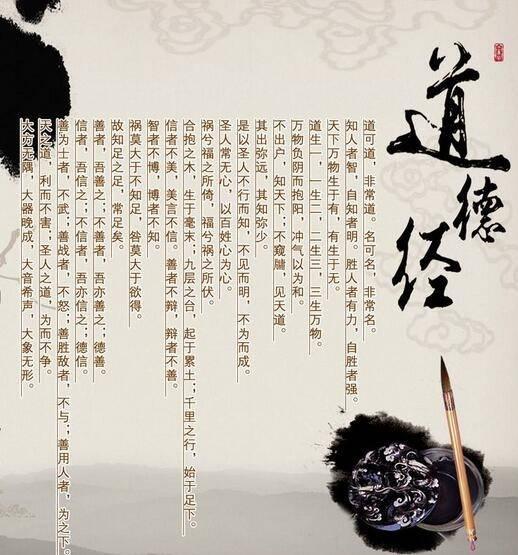 道德经
道可道，非常道。名可名，非常名。
知人者智，自知者明。胜人者有力，自胜者强。
天下万物生于有，有生于无。
道生一，一生二，二生三，三生万物。
万物负阴而抱阳，冲气以为和。
不出户，知天下；不窥牖，见天道。
其出弥远，其知弥少。
是以圣人不行而知，不见而明，不为而成。
圣人常无心，以百姓心为心。
祸兮福之所倚，福兮祸之所伏。
合抱之木，生于毫末；九层之台，起于累土；千里之行，始于足下。
信者不美，美言不信。善者不辩，辩者不善。
智者不博，博者不知。
祸莫大于不知足，咎莫大于欲得。
故知足之足，常足矣。
善者，吾善之；不善者，吾亦善之；德善。
信者，吾信之；不信者，吾亦信之；德信。
善为士者，不武；善战者，不怒；善胜敌者，不与；善用人者，为之下。
天之道，利而不害；圣人之道，为而不争。
大方无隅，大器晚成，大音希声，大象无形。